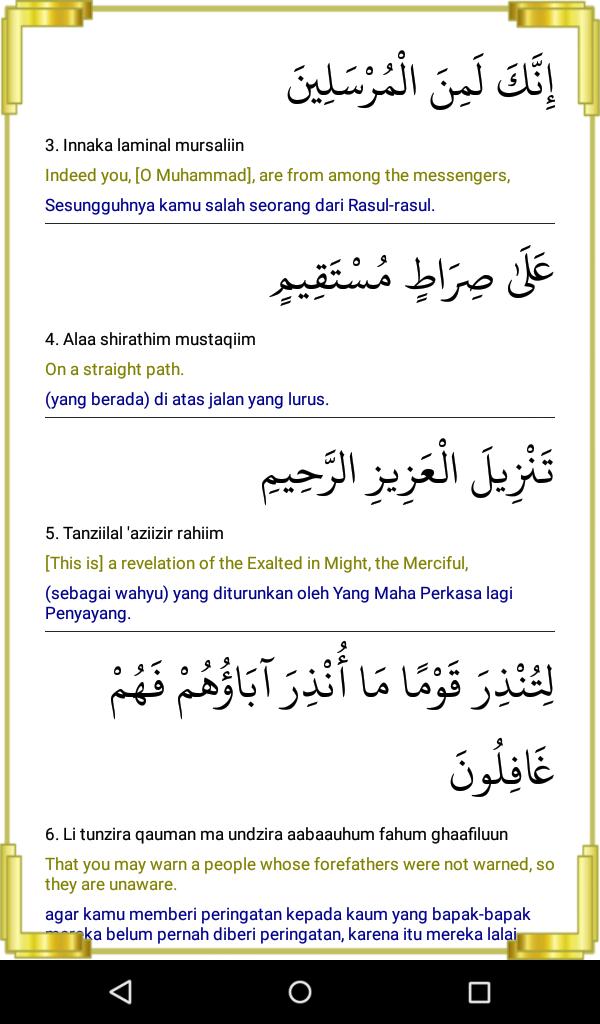 إِنَّكَ لَمِنَ الْمُرْسَلِينَ
3. Innaka laminal mursaliin
Indeed you, [O Muhammad], are from among the messengers,
Sesungguhnya kamu salah seorang dari Rasul-rasul.
عَلَىٰ صِرَاطٍ مُسْتَقِيمٍ
4. Alaa shirathim mustaqiim
On a straight path.
(yang berada) di atas jalan yang lurus.
تَنْزِيلَ الْعَزِيزِ الرَّحِيمِ
5. Tanziilal 'aziizir rahiim
[This is] a revelation of the Exalted in Might, the Merciful,
(sebagai wahyu) yang diturunkan oleh Yang Maha Perkasa lagi
Penyayang.
لِتُنْذِرَ قَوْمًا مَا أُنْذِرَ آبَاؤُهُمْ فَهُمْ
غَافِلُونَ
6. Li tunzira qauman ma undzira aabaauhum fahum ghaafiluun
That you may warn a people whose forefathers were not warned, so
they are unaware.
agar kamu memberi peringatan kepada kaum yang bapak-bapak
mereka belum pernah diberi peringatan, karena itu mereka lalai